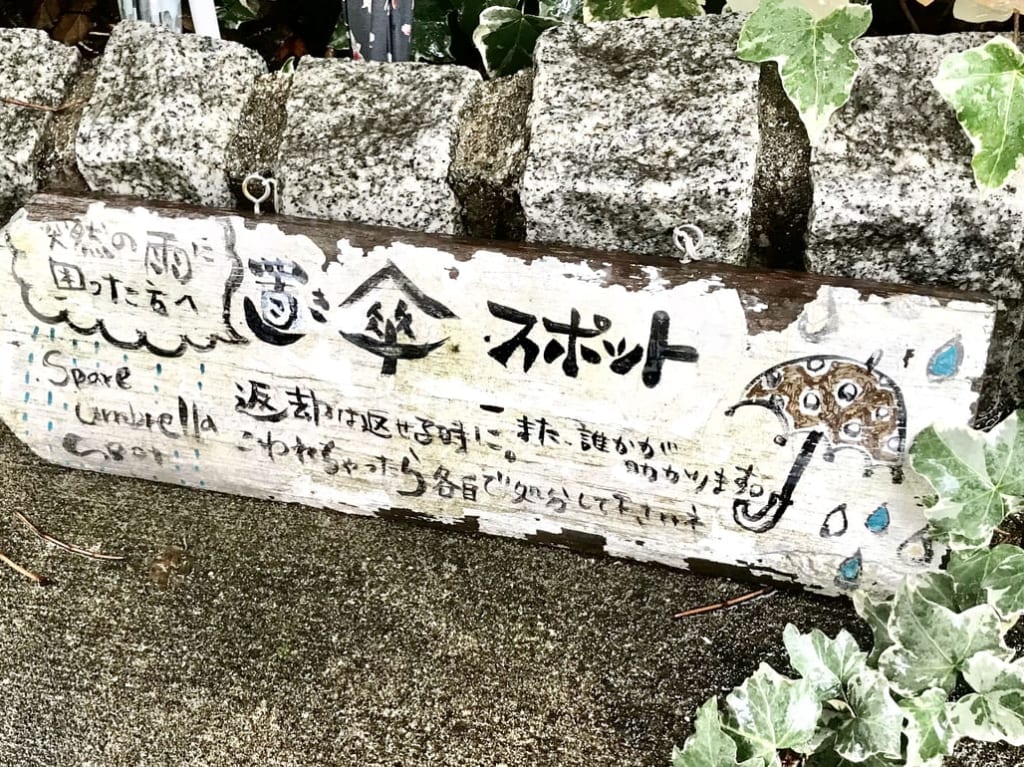 突然の雨に
困った方へ
置き傘スポット
Spare
Umbrella
Spot
返却は返せる時に。また、誰かが
助かりますね
こわれちゃったら各自で処分して下さいネ